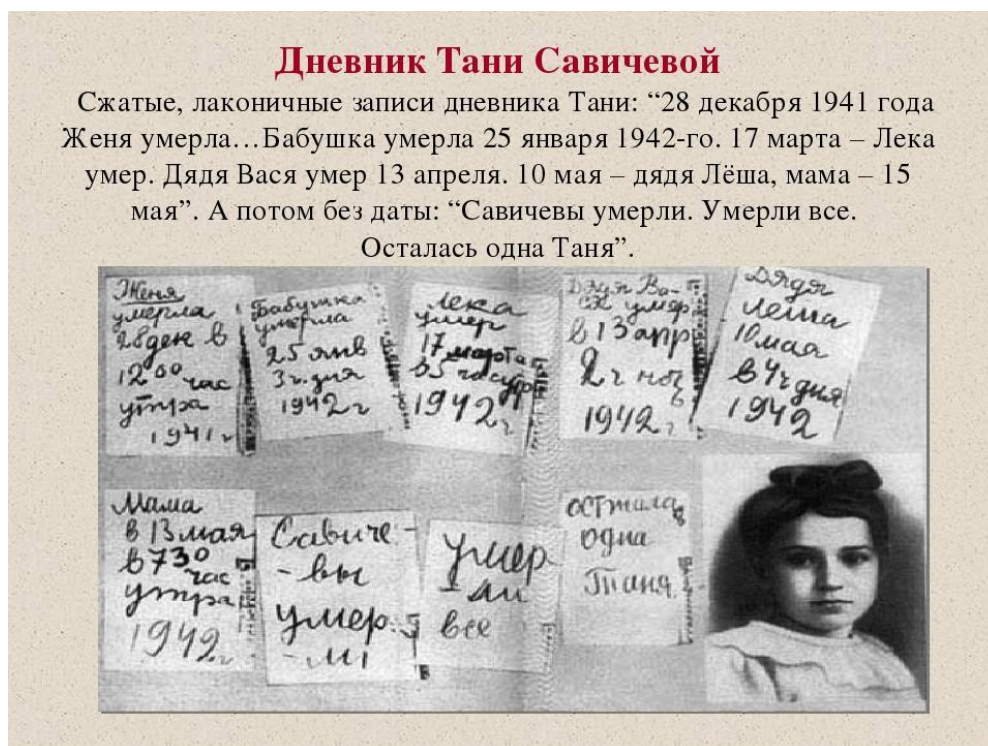 Дневник Тани Савичевой
Сжатые, лаконичные записи дневника Тани: “28 декабря 1941 года
Женя умерла…Бабушка умерла 25 января 1942-го. 17 марта – Лека
умер. Дядя Вася умер 13 апреля. 10 мая – дядя Лёша, мама – 15
мая”. А потом без даты: “Савичевы умерли. Умерли все.
Осталась одна Таня”.
Женя
умерла
28 дек в
12 00 час
утра
1941 г
Бабушка
умерла
25 янв
3 ч. дня
1942 г
Лека
умер
17 марта
в 5 час утр
1942 г
Дядя Ва-
ся умер
в 13 апр
2 ч ноч
1942 г
Дядя
Леша
10 мая
в 4 ч дня
1942
Мама
в 13 мая
в 7 30
час
утра
1942 г
Савиче-
-вы
умер.
-ли
умер
ли
все
Осталась
одна
Таня